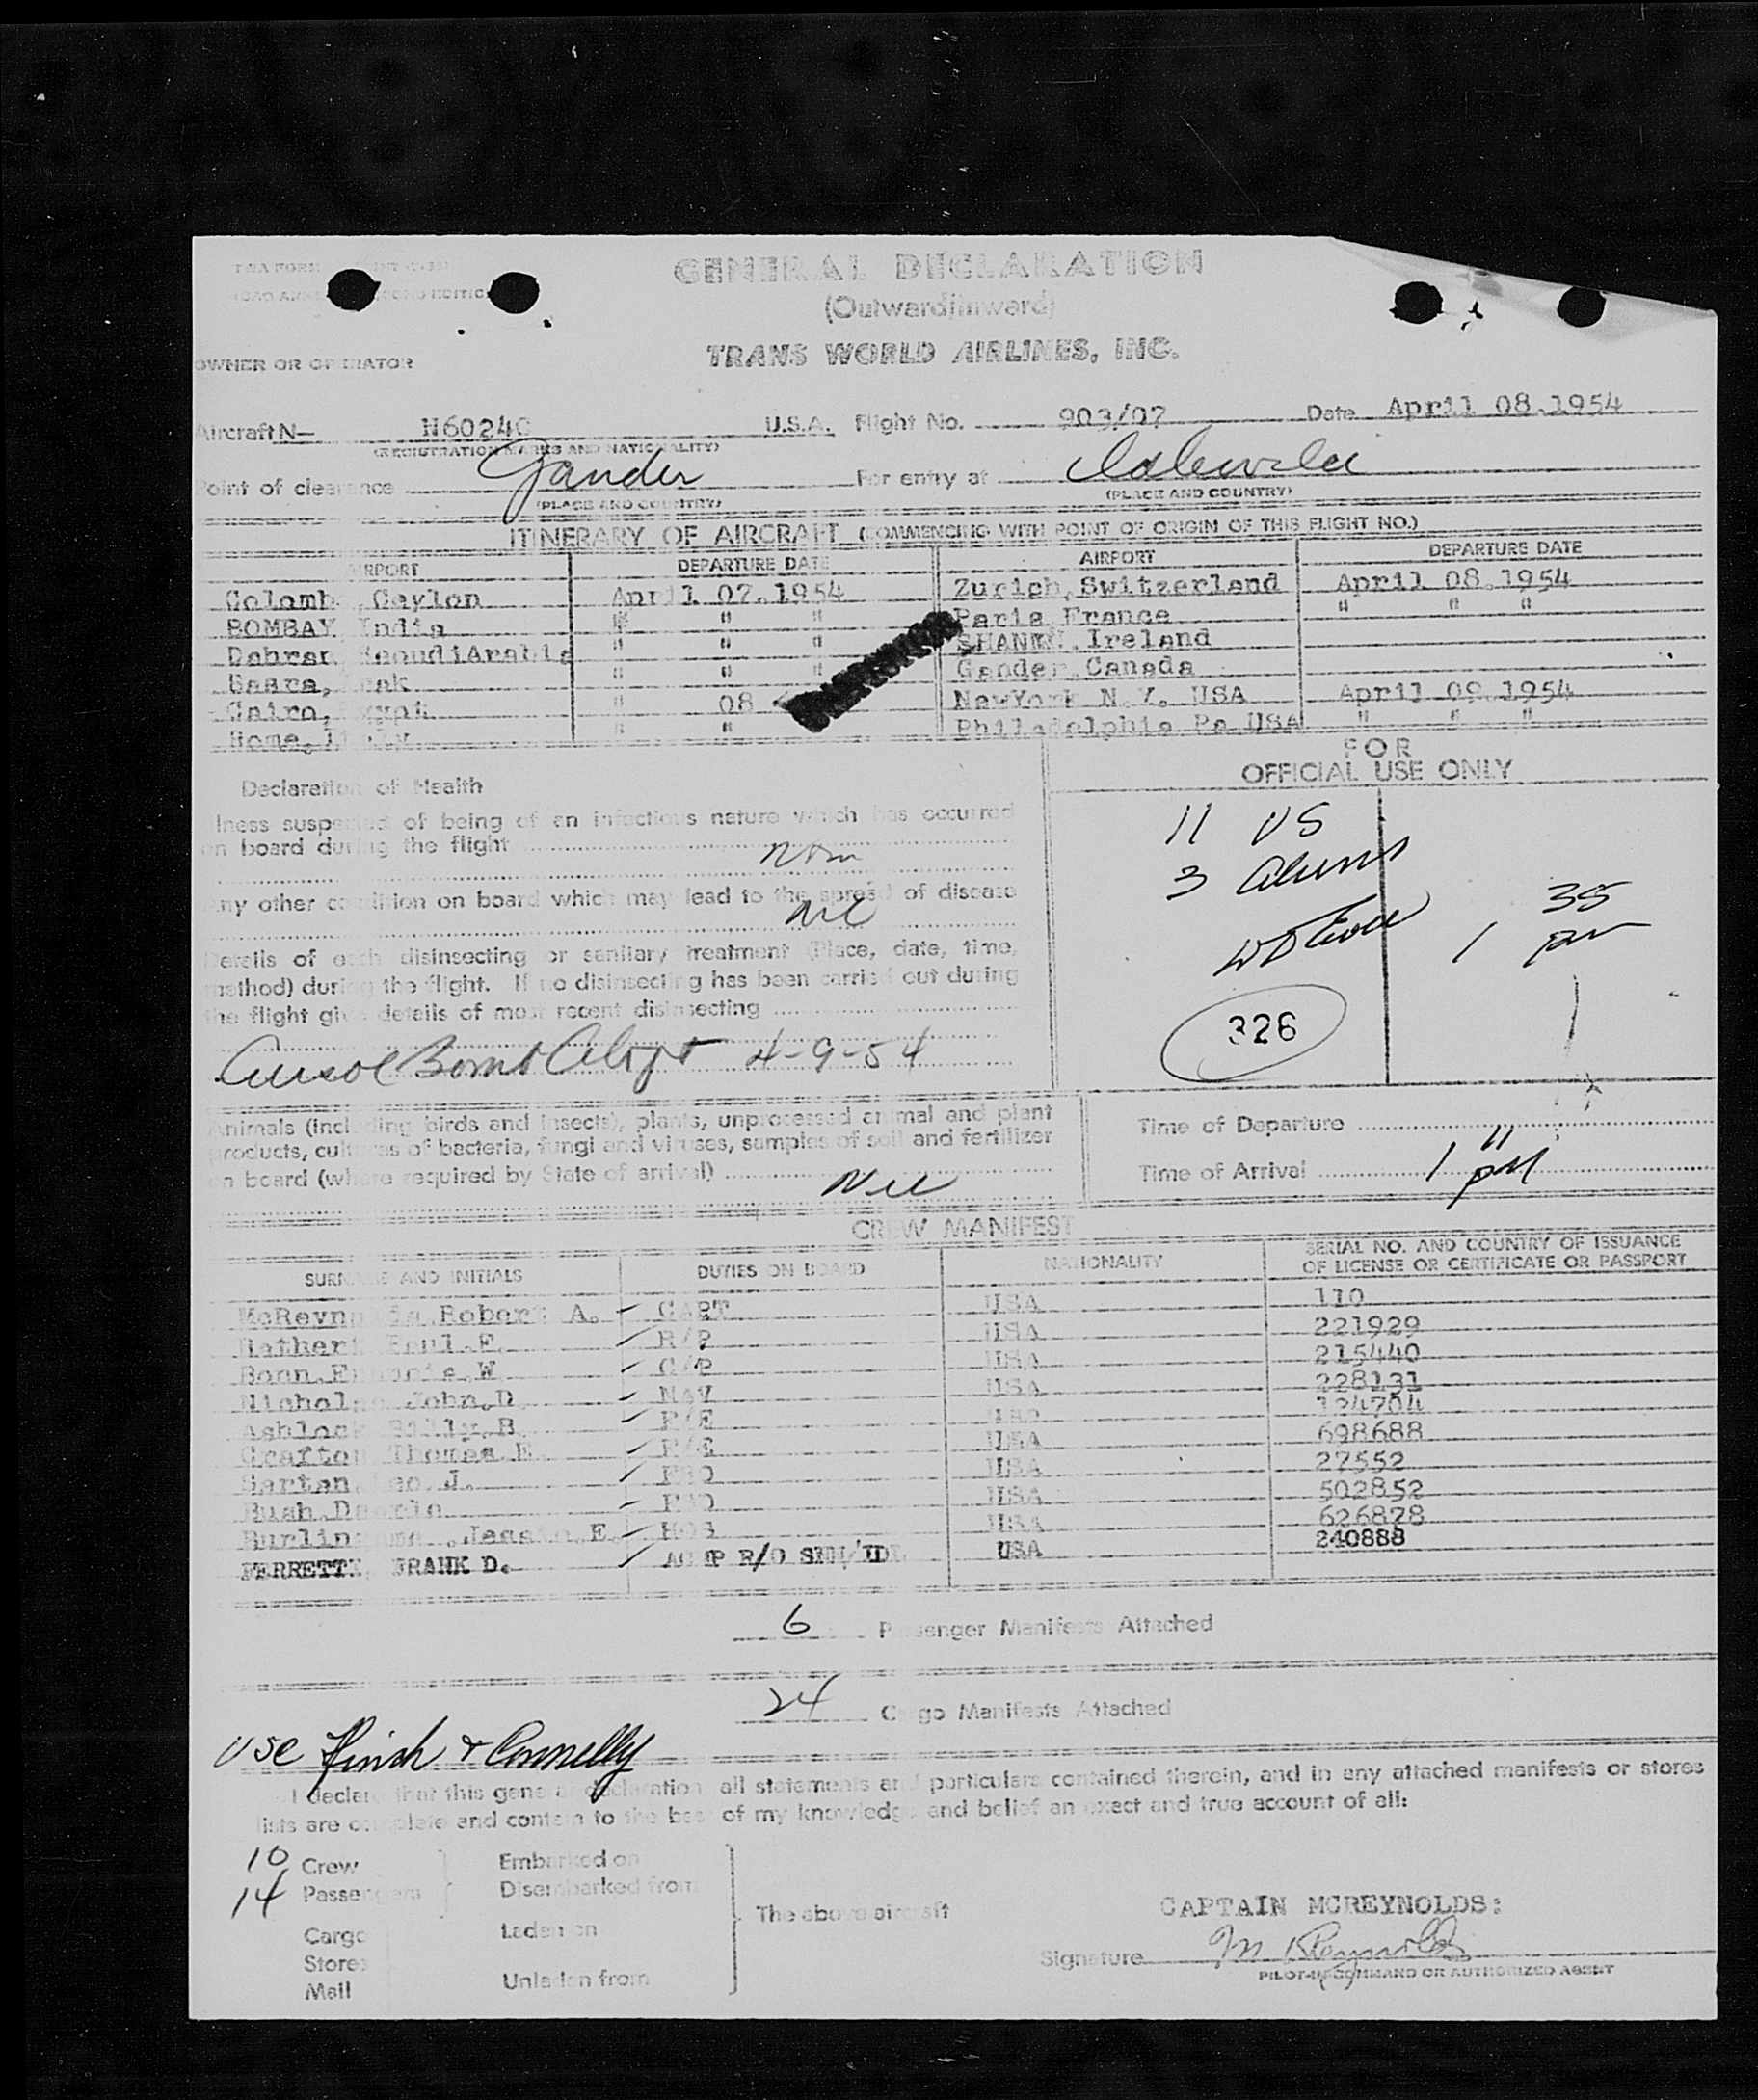 TWA FORM
GENERAL DECLARATION
(Outward/Inward)
OWNER OR OPERATOR TRANS WORLD AIRLINES, INC.
Aircraft N— N6024C U.S.A. Flight No. 903/07 Date April 08.1954
(REGISTRATION MARKS AND NATIONALITY)
Point of clearance Gander For entry at Idlewild
(PLACE AND COUNTRY) (PLACE AND COUNTRY)
ITINERARY OF AIRCRAFT (COMMENCING WITH POINT OF ORIGIN OF THIS FLIGHT NO.)
AIRPORT DEPARTURE DATE AIRPORT DEPARTURE DATE
Colomb Ceylon April 07.1954 Zurich, Switzerland April 08.1954
BOMBAY India " " " Paris France " " "
Dahran SaoudiArabia " " " SHANNON. Ireland
Basra, " " " Gander Canada
Cairo, Egypt " 08 NewYork N.Y. USA April 09.1954
Rome, Italy " " Philadelphia Pa USA " " "
FOR
OFFICIAL USE ONLY
Declaration of Health
lness suspected of being of an infectious nature which has occurred
on board during the flight
11 US
3 Aliens
35
1 pm
326
Any other condition on board which may lead to the spread of disease
Nil
Details of each disinsecting or sanitary treatment (Place, date, time,
method) during the flight. If no disinsecting has been carried out during
the flight give details of most recent disinsecting
Bomb 4-9-54
Animals (including birds and insects), plants, unprocessed animal and plant
products, cultures of bacteria, fungi and viruses, samples of soil and fertilizer
on board (where required by State of arrival) Nil
Time of Departure
Time of Arrival 1 11 pm
CREW MANIFEST
SURNAME AND INITIALS DUTIES ON BOARD NATIONALITY SERIAL NO. AND COUNTRY OF ISSUANCE
OF LICENSE OR CERTIFICATE OR PASSPORT
McReynolds, Robert A. CAPT USA 110
Paul.F. USA 221929
Francis.W USA 215440
Nichols John.D NAV USA 228131
Ashlock Billy.B F/E USA 124704
Grafton Thomas.E F/E USA 698688
Sartan, Leo J. USA 27552
Bush. USA 502852
Burlingame ,Jessie.E. HOS USA 626878
FERRETTI, FRANK D. R/O SNN/IDL USA 240888
6 Passenger Manifests Attached
24 Cargo Manifests Attached
USC Finch & Connelly
I declare that this general declaration all statements and particulars contained therein, and in any attached manifests or stores
lists are complete and contain to the best of my knowledge and belief an exact and true account of all:
10 Crew Embarked on
14 Passengers Disembarked from
The above aircraft
Cargo Laden on
Stores
Mail Unladen from
CAPTAIN MCREYNOLDS:
Signature McReynolds
PILOT-IN-COMMAND OR AUTHORIZED AGENT